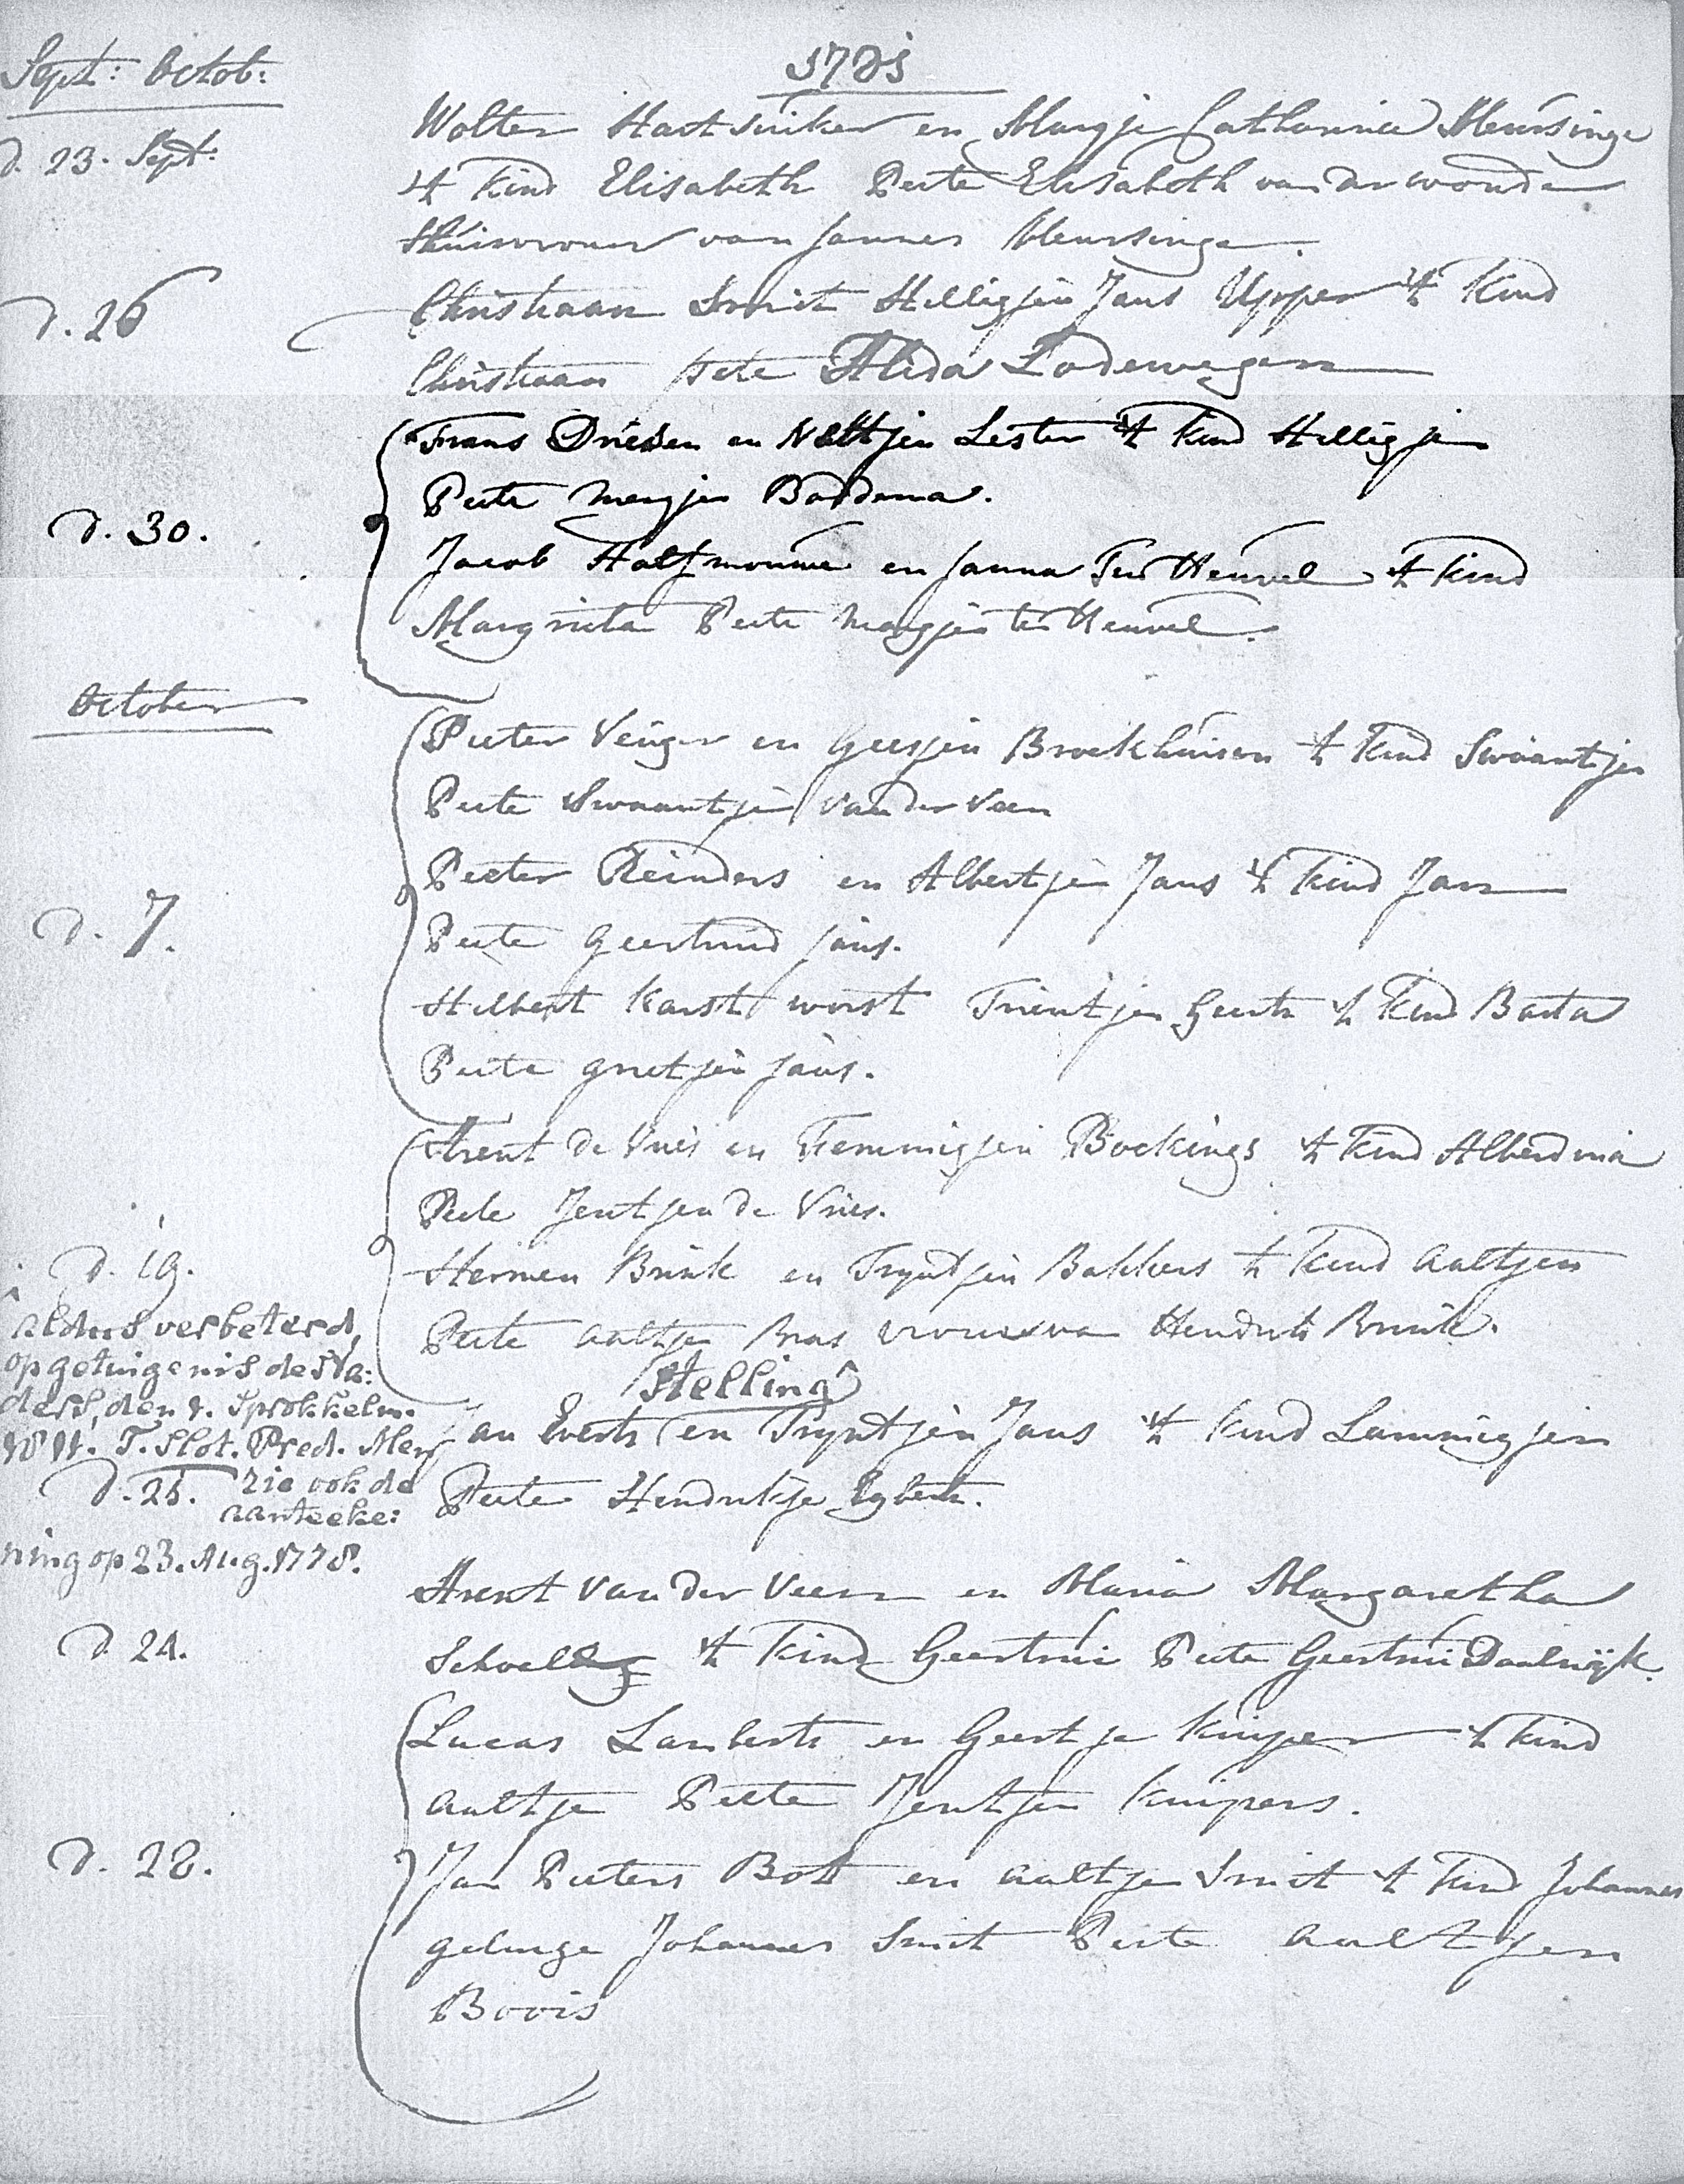 Sept: Octob:
1781
d. 23. Sept:
Wolter Hartsuiker en Margje Catharina Meursinge
't Kind Elisabeth Peete Elisabeth van der Wonde
Huisvrouw van Jannes Meursinge.
d. 26
Christiaan Smit Hilligjen Jans Upper 't Kind
Christiaan pete Alida Lodewegen
d. 30.
Frans Driesen en Neltjen Lester 't kind Hilligjen
Peete Margjen Baddema.
Jacob Halfmouwe en Janna Ten Heuvel 't kind
Margrieta Peete Margjen ten Heuvel.
October
d. 7.
Pieter Venger en Geesjen Broekhuisen 't kind Swaantjen
Peete Swaantjen van der Veen
Peeter Reinders en Albertjen Jans 't kind Jan
Peete Geertruid Jans.
Hilbert Karst worst Trientjen Geerts 't kind Barta
Peete Grietjen Jans.
d. 19.
Arent de Vries en Femmigjen Bockings 't kind Alberdina
Peete Jentjen de Vries.
Hermen Brink en Tryntjen Bakkers 't kind Aaltjen
Peete Aaltje Bras vrouw van Hendrik Brink.
aldus verbeterd,
op getuigenis des Va:
ders, den 1. Sprokkelm.
1811. T. Slot. Pred. Mep
zie ook de
aanteeke:
ning op 23. Aug. 1778.
Stelling
d. 21.
Jan Everts en Tryntjen Jans 't kind Lammigjen
Peete Hendrikje Egberts.
d. 24.
Arent van der Veen en Maria Margaretha
't Kind Geertrui Peete Geertrui Daalwijk.
d. 28.
Lucas Lamberts en Geertje Kuiper 't kind
Aaltje Peete Jentjen Kuipers.
Jan Pieters Bott en Aaltjen Smit 't kind Johannes
getuige Johannes Smit Peete Aaltjen
Bovis